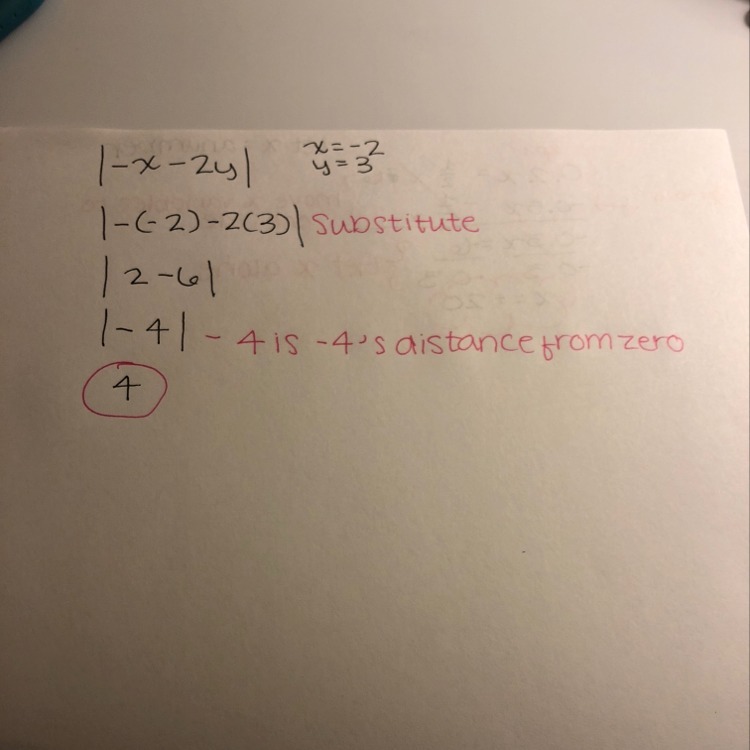 |-x-2y| x=-2
y=3
|-(-2)-2(3)| Substitute
|2-6|
|-4| - 4 is -4's distance from zero
4